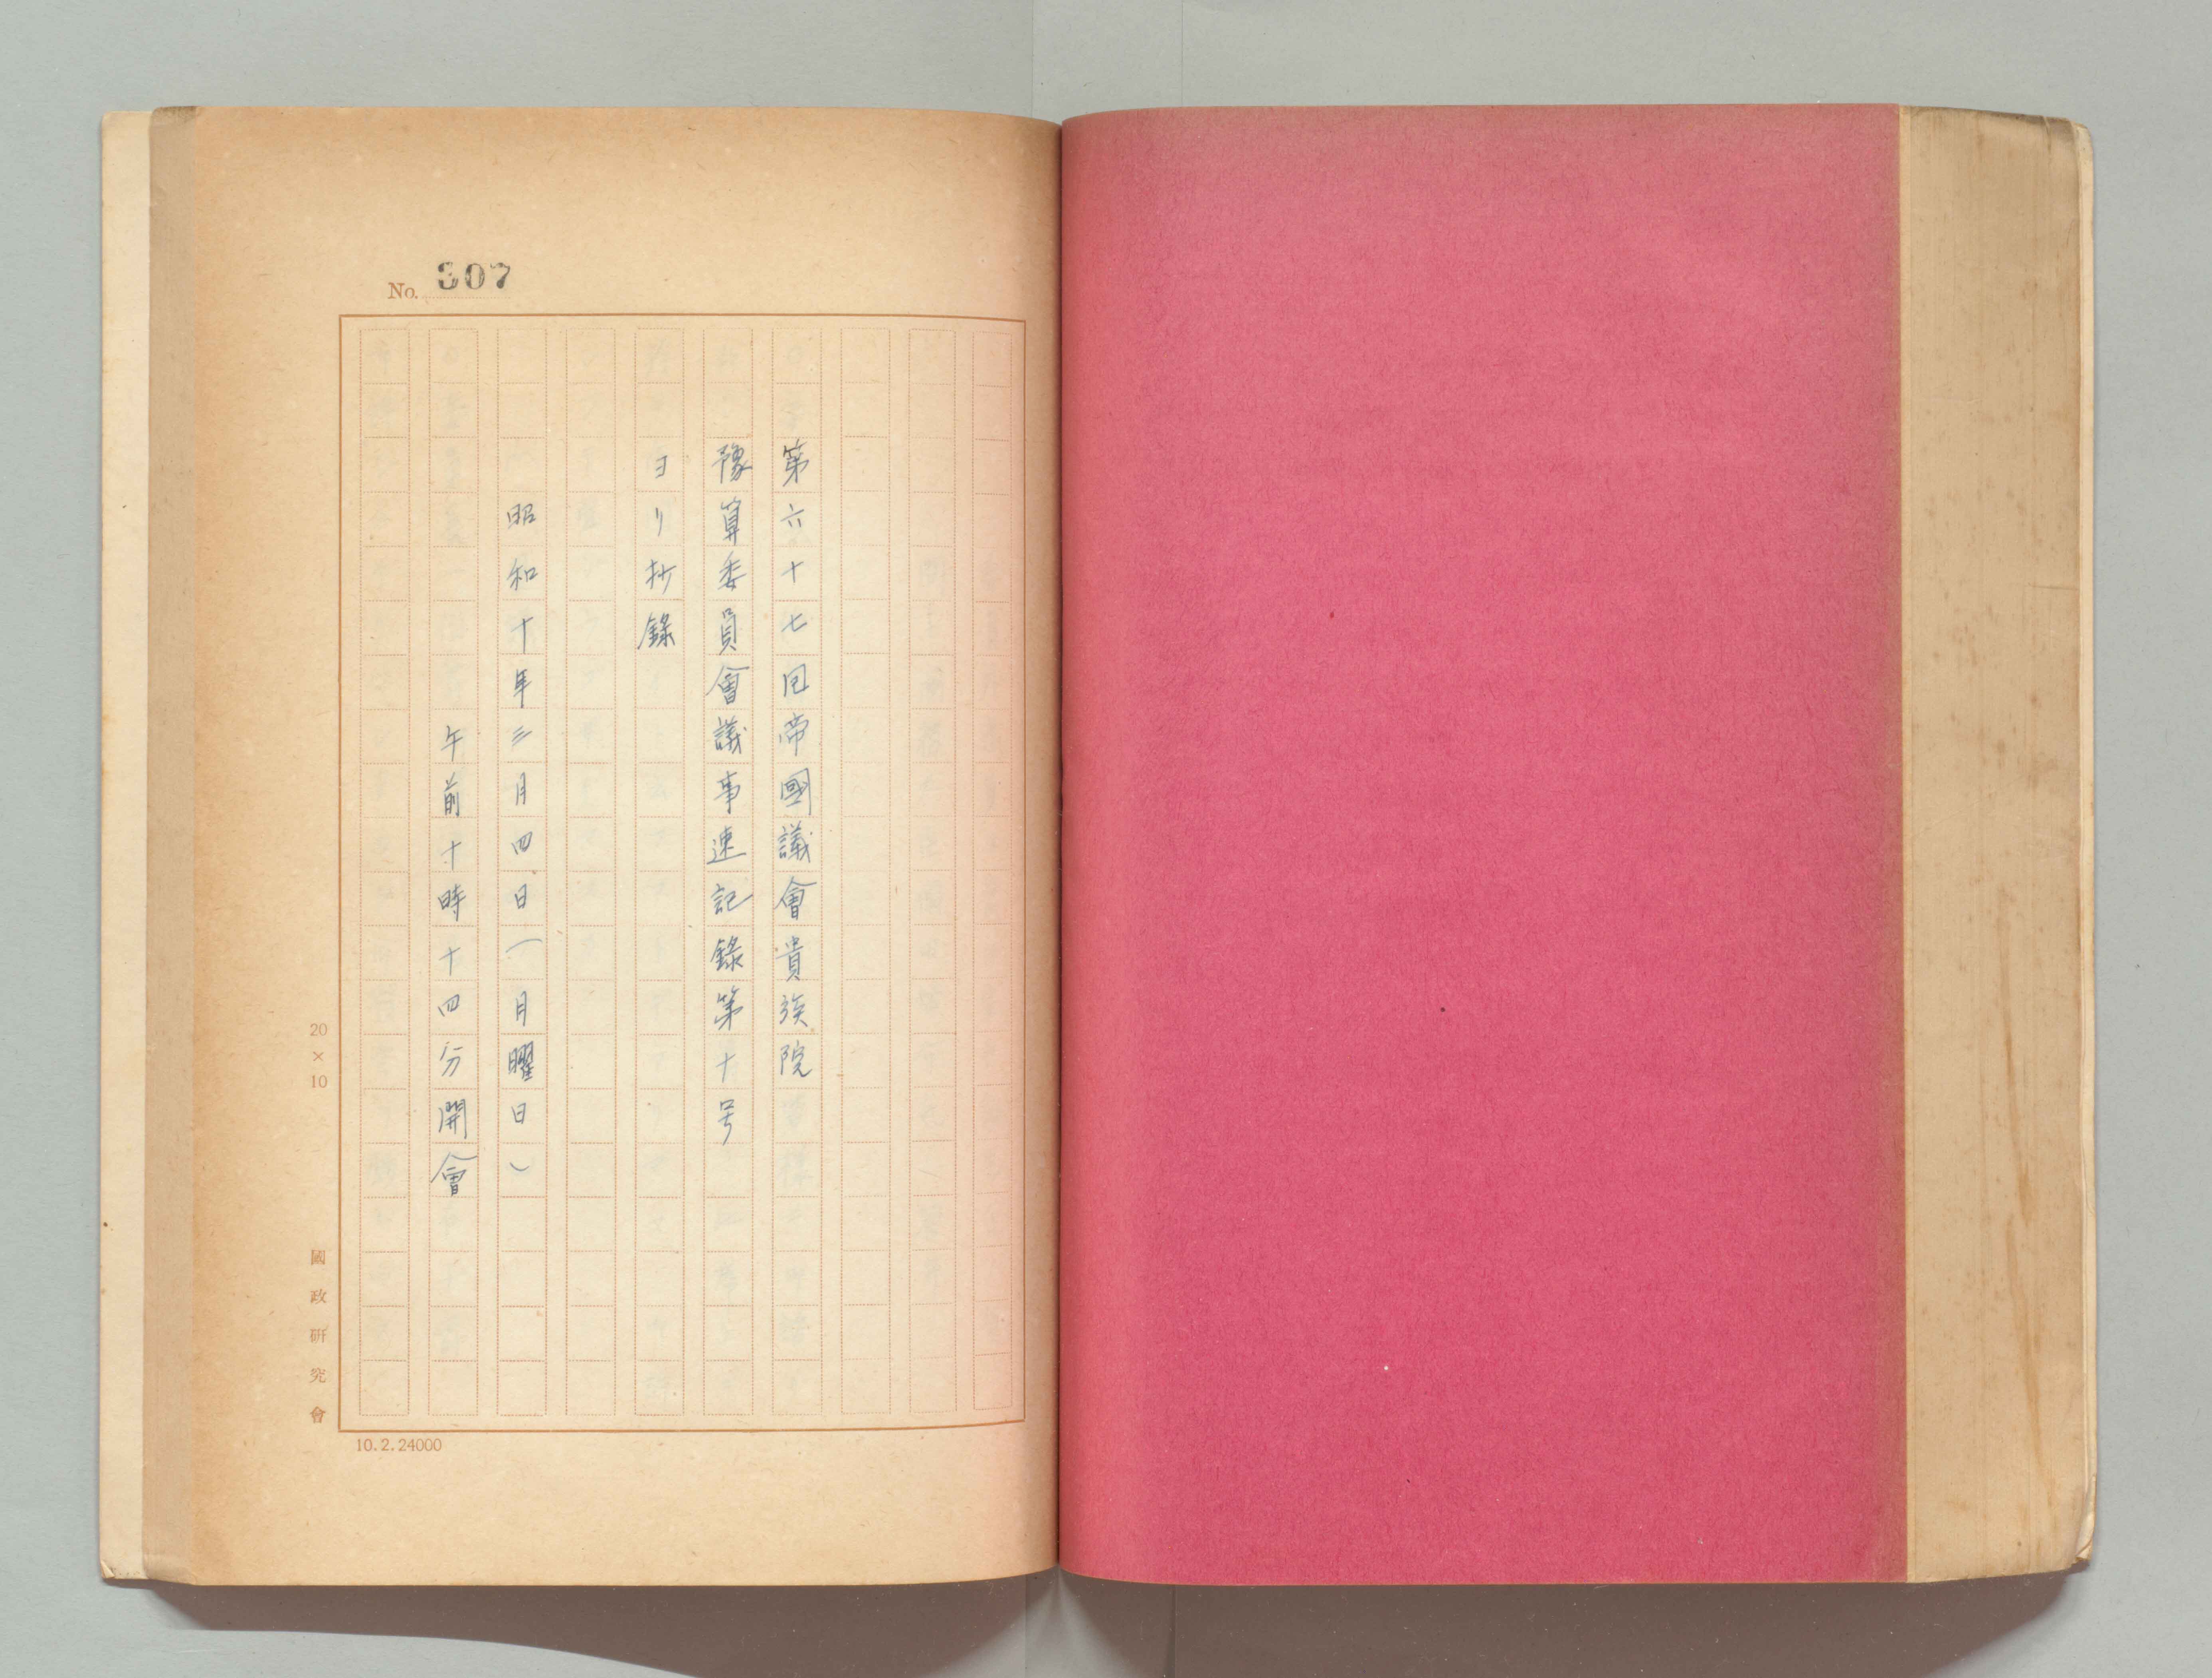 No. 307
第六十七回帝國議會貴族院
豫算委員會議事速記錄第十号
ヨリ抄錄
昭和十年三月四日(月曜日)
午前十時十四分開會
20×10
國政研究會
10.2.24000